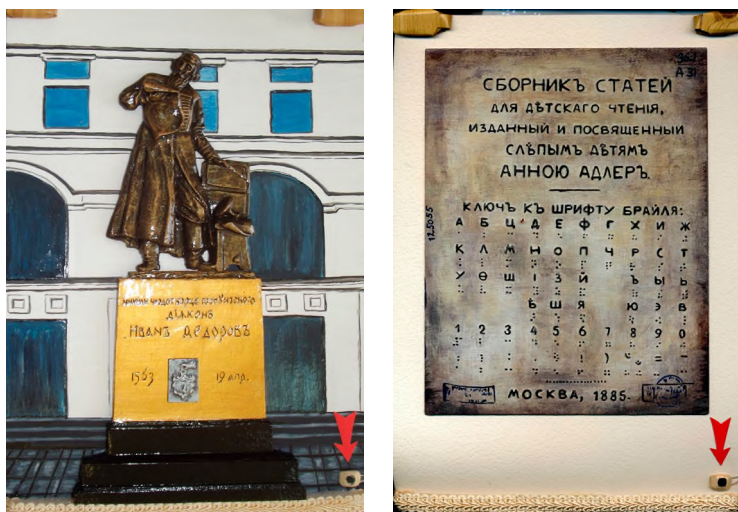 ИВАНЪ ФЕДОРОВЪ
1563 19 апр.
СБОРНИКЪ СТАТЕЙ
ДЛЯ ДѢТСКАГО ЧТЕНІЯ,
ИЗДАННЫЙ И ПОСВЯЩЕННЫЙ
СЛѢПЫМЪ ДѢТЯМЪ
АННОЮ АДЛЕРЪ.
КЛЮЧЪ КЪ ШРИФТУ БРАЙЛЯ:
А Б Ц Д Е Ф Г Х И Ж
К Л М Н О П Ч Р С Т
У Ѳ Щ І З Й Ъ Ы Ь
Ѣ Ш Я Ю Э В
1 2 3 4 5 6 7 8 9 0
МОСКВА, 1885.